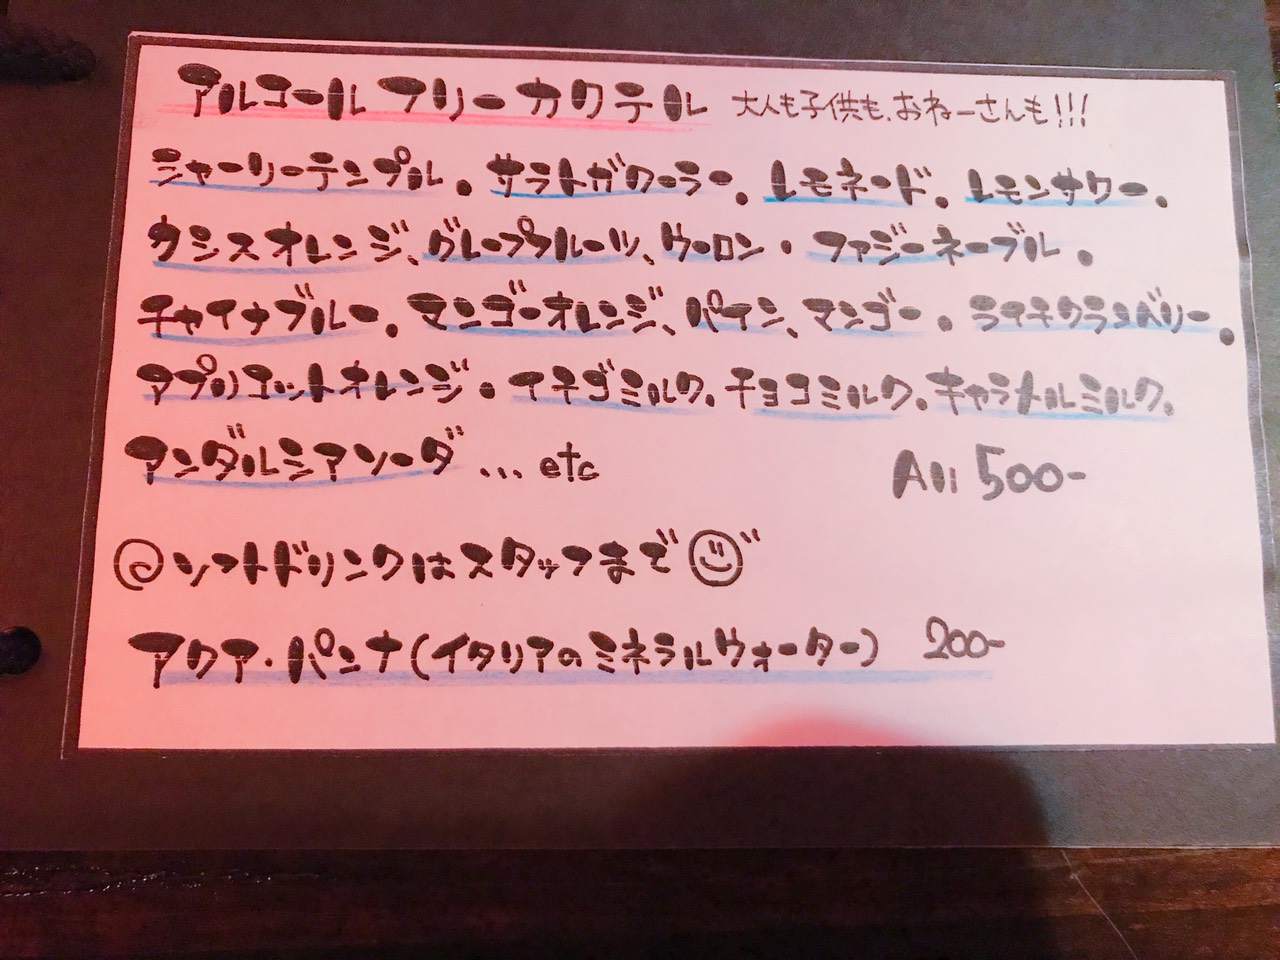 アルコールフリーカクテル 大人も子供も、おねーさんも!!!
シャーリーテンプル。サラトガクーラー。レモネード。レモンサワー。
カシスオレンジ、グレープフルーツ、ウーロン・ファジーネーブル。
チャイナブルー。マンゴーオレンジ、パイン、マンゴー。ライチクランベリー。
アプリコットオレンジ・イチゴミルク。チョコミルク。キャラメルミルク。
アンダルシアソーダ ... etc All 500-
@ソフトドリンクはスタッフまで
アクア・パンナ(イタリアのミネラルウォーター) 200-